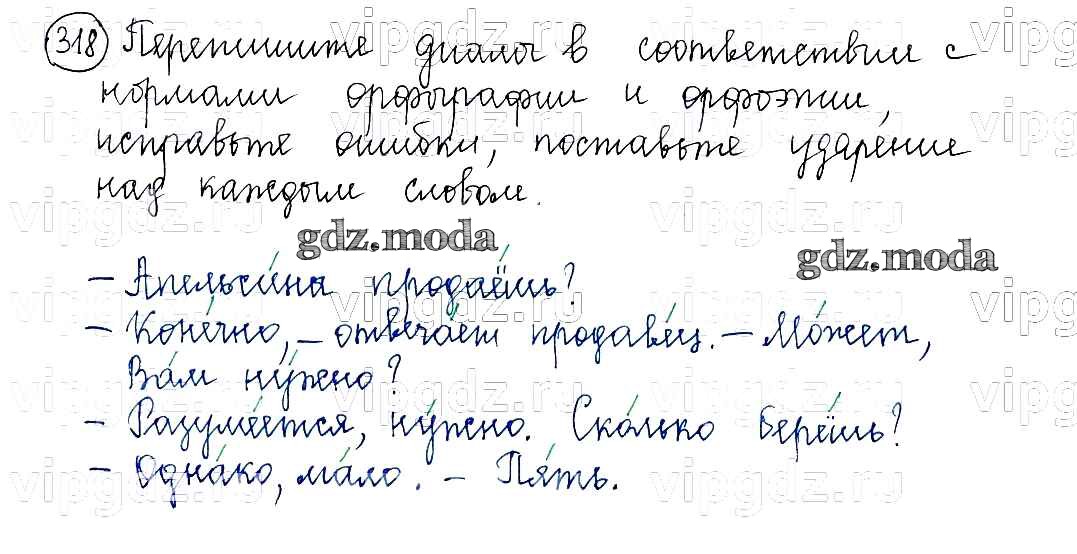 318 Перепишите диалог в соответствии с
нормами орфографии и орфоэпии,
исправьте ошибки, поставьте ударение
над каждым словом.
gdz.moda
gdz.moda
– Апельси́на продаёшь?
– Коне́чно, – отвеча́ет продаве́ц. – Мо́жет,
Ва́м ну́жно?
– Разуме́ется, ну́жно. Ско́лько берёшь?
– Одна́ко, ма́ло. – Пя́ть.
vipgdz.ru